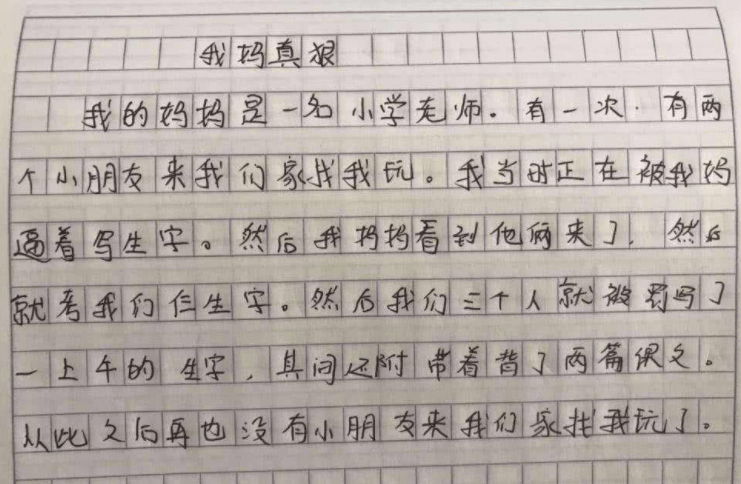 我妈真狠
我的妈妈是一名小学老师。有一次.有两
个小朋友来我们家找我玩。我当时正在被我妈
逼着写生字。然后我妈妈看到他俩来了,然后
就考我们仨生字。然后我们三个人就被罚写了
一上午的生字,其间还附带着背了两篇课文。
从此之后再也没有小朋友来我们家找我玩了。